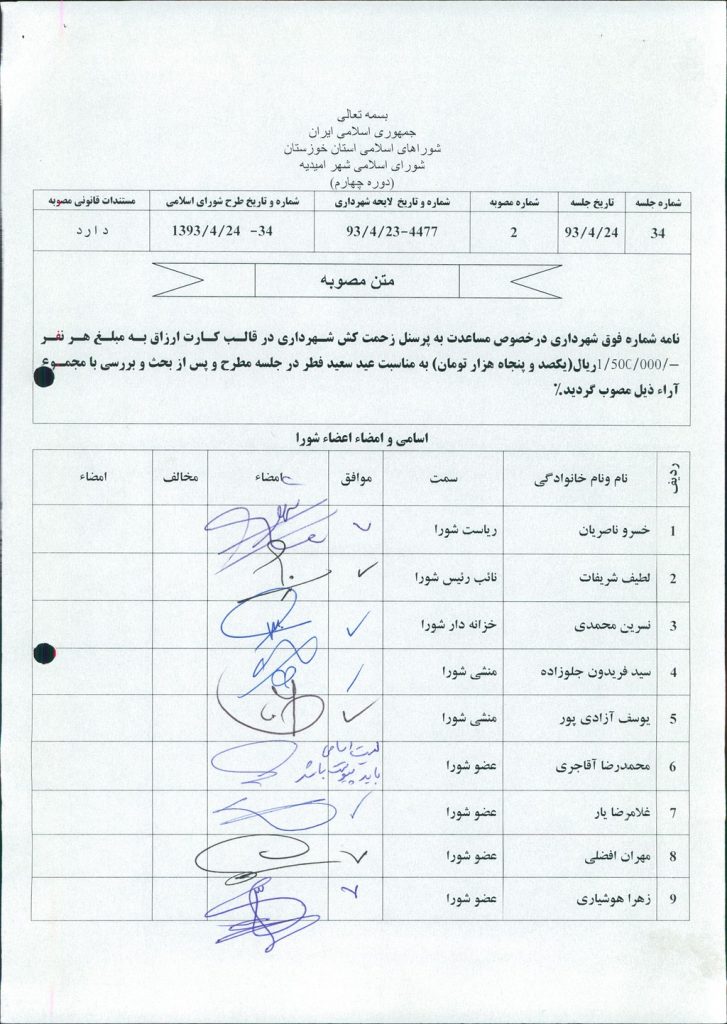 بسمه تعالی
جمهوری اسلامی ایران
شوراهای اسلامی استان خوزستان
شورای اسلامی شهر امیدیه
(دوره چهارم)
شماره جلسه تاریخ جلسه شماره مصوبه شماره و تاریخ لایحه شهرداری شماره و تاریخ طرح شورای اسلامی مستندات قانونی مصوبه
34 93/4/24 2 93/4/23-4477 1393/4/24 -34 دارد
متن مصوبه
نامه شماره فوق شهرداری درخصوص مساعدت به پرسنل زحمت کش شهرداری در قالب کارت ارزاق به مبلغ هر نفر
1/500/000/-ریال(یکصد و پنجاه هزار تومان) به مناسبت عید سعید فطر در جلسه مطرح و پس از بحث و بررسی با مجموع
آراء ذیل مصوب گردید.٪
اسامی و امضاء اعضاء شورا
ردیف نام ونام خانوادگی سمت موافق امضاء مخالف امضاء
1 خسرو ناصریان ریاست شورا
2 لطیف شریفات نائب رئیس شورا
3 نسرین محمدی خزانه دار شورا
4 سید فریدون جلوزاده منشی شورا
5 یوسف آزادی پور منشی شورا
6 محمدرضا آقاجری عضو شورا لیست اسامی
باید پیوست باشد
7 غلامرضا یار عضو شورا
8 مهران افضلی عضو شورا
9 زهرا هوشیاری عضو شورا